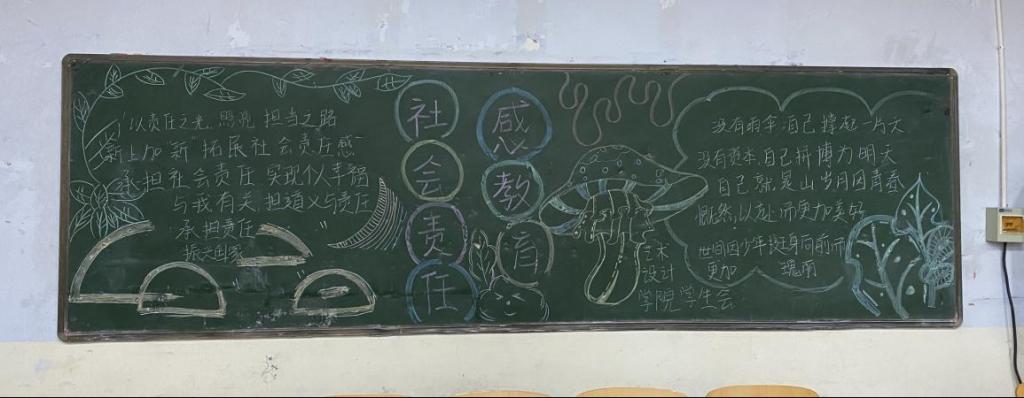 以责任之光 照亮 担当之路
新上加新 拓展社会责任感
承担社会责任 实现个人幸福
与我有关 担道义与责任
承担责任
振兴国家
社会责任
感教育
没有雨伞自己撑起一片天
没有资本自己拼搏为明天
自己就是山岁月因青春
慨然以赴而更加美好
世间因少年挺身向前而
更加 瑰丽
艺术
设计
学院学生会